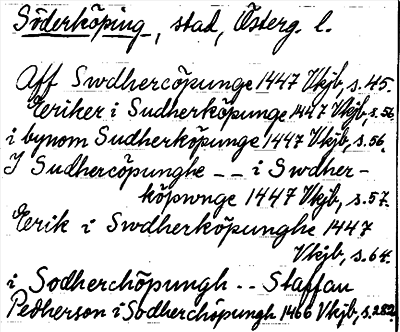 Söderköping, stad, Österg. l.
Aff Swdhercöpunge 1447 Vkjb, s. 45.
Eeriker i Sudherköpunge 1447 Vkjb, s. 56
i bynom Sudherköpunge 1447 Vkjb, s. 56.
J Sudhercöpunghe -- i Swdher-
köpwnge 1447 Vkjb, s. 57.
Eerik i Swdherköpunghe 1447
Vkjb, s. 64.
i Sodherchöpungh -- Staffan
Pedherson i Sodherchöpungh 1466 Vkjb, s. 282.